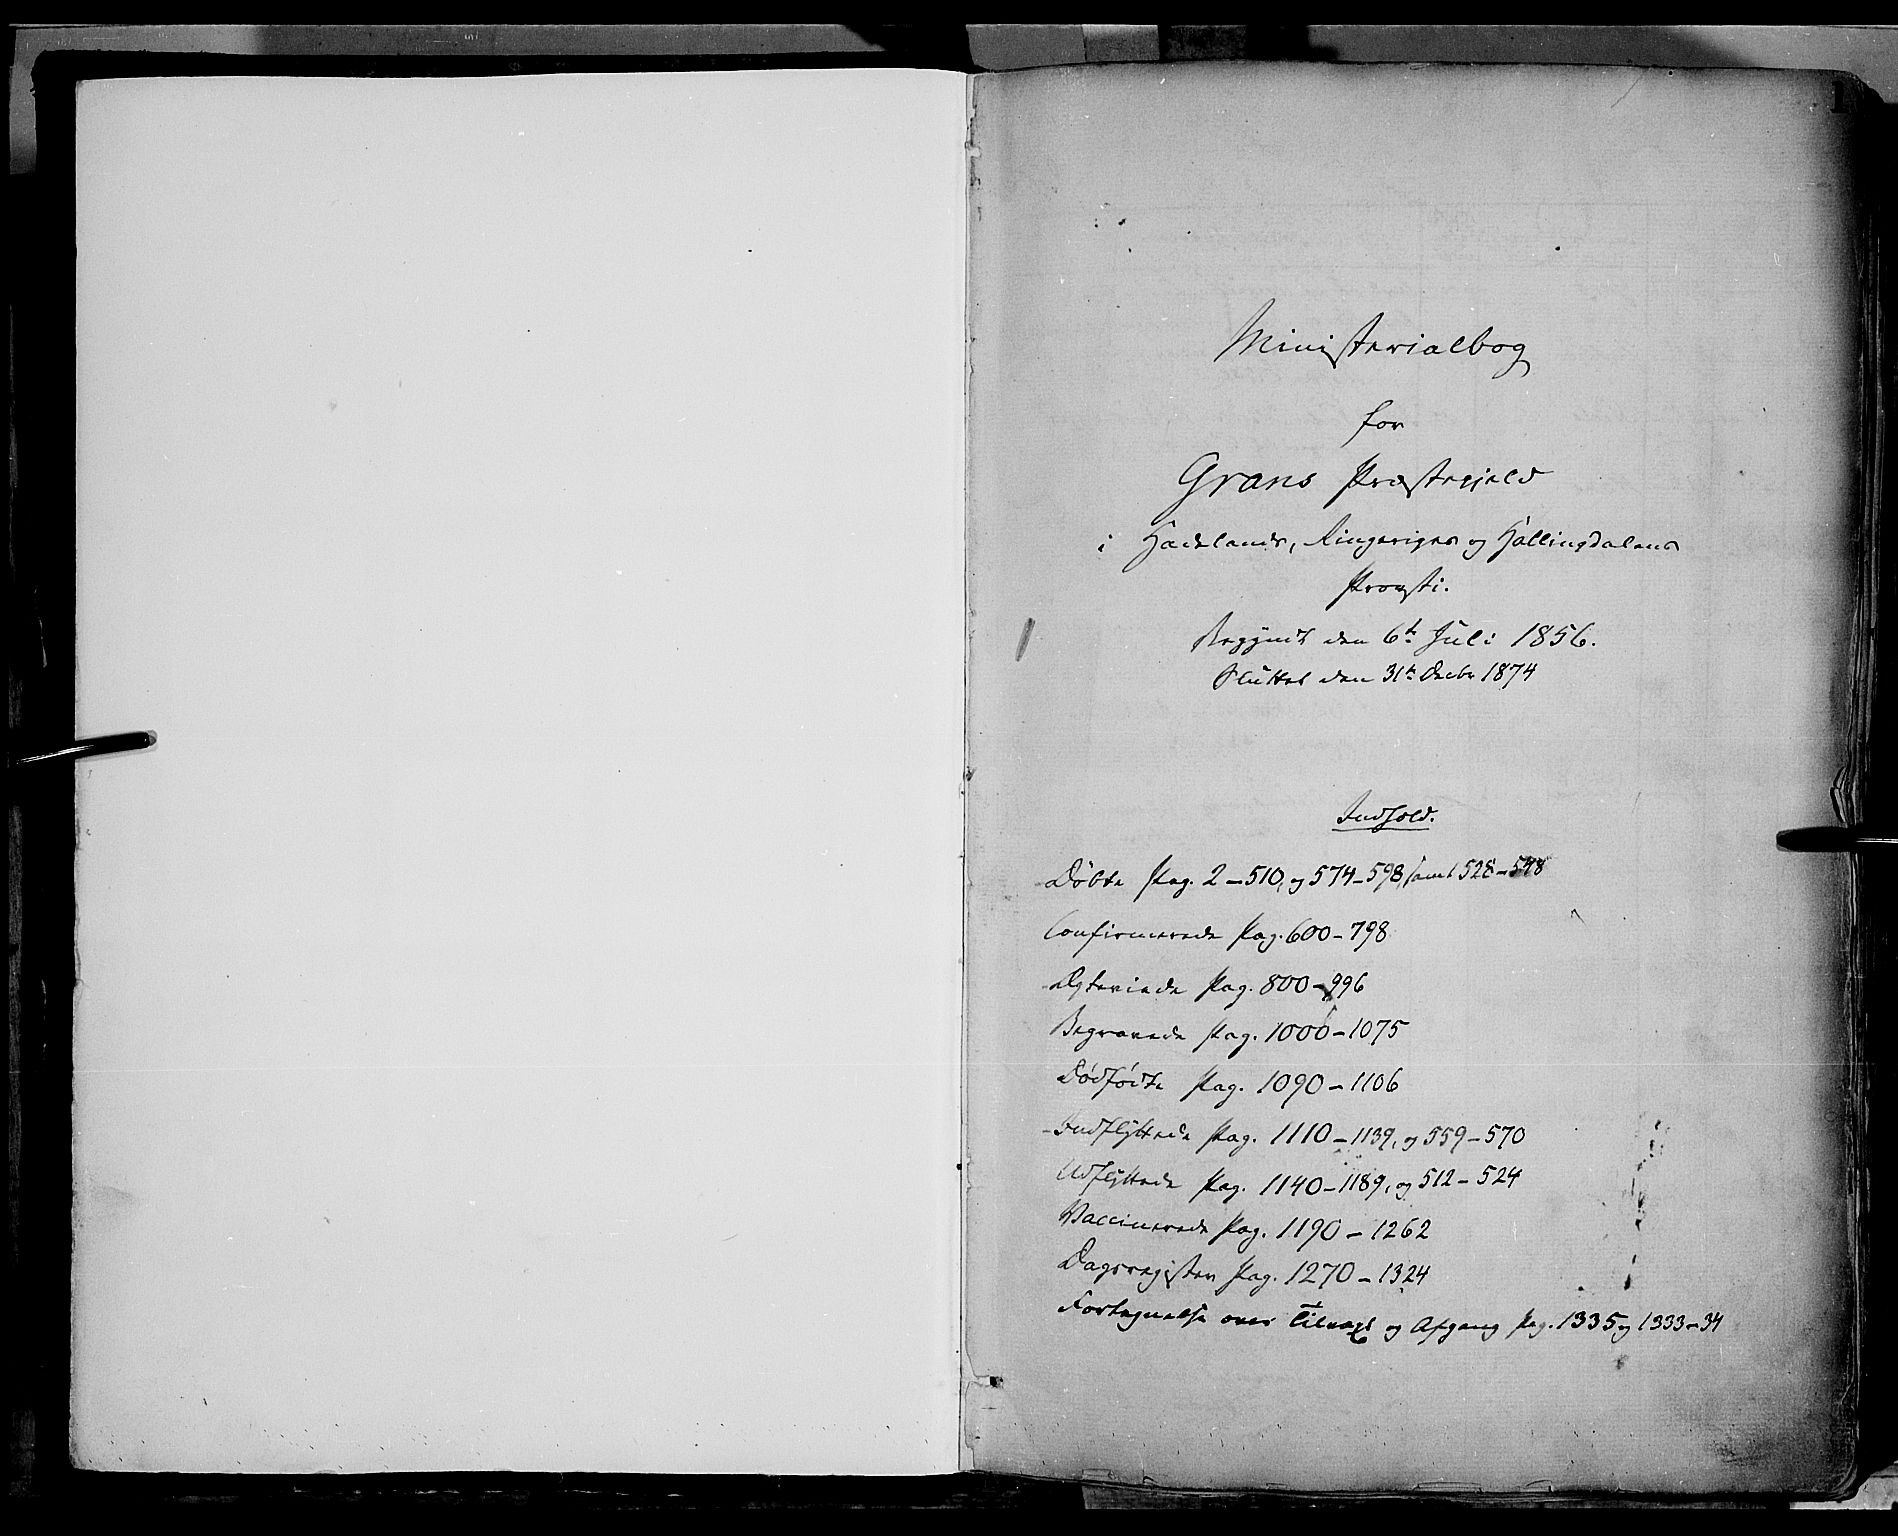 1
Ministerialbog
for
Grans Præstegjeld
i Hadelands, Ringeriges og Hallingdalens
Provsti.
Begyndt den 6te Juli 1856.
Sluttet den 31te Decbr 1874
Indhold.
Döbte Pag. 2-510, og 574-598, samt 528-548
Confirmerede Pag. 600-798
Ægteviede Pag. 800-996
Begravede Pag. 1000-1075
Dödfödte Pag. 1090-1106
Indflyttede Pag. 1110-1139, og 559-570
Udflyttede Pag. 1140-1189, og 512-524
Vaccinerede Pag. 1190-1262
Dagsregister Pag. 1270-1324
Fortegnelse over Tilvæxt og Afgang Pag. 1335 og 1333-34